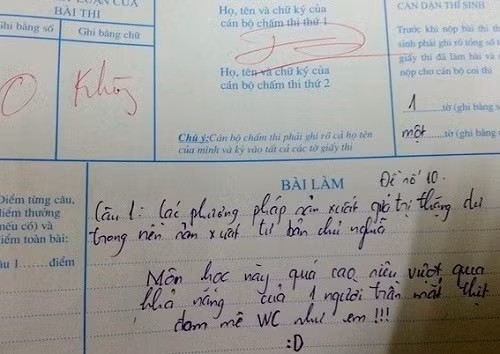 KẾT LUẬN CỦA
BÀI THI
Ghi bằng số
Ghi bằng chữ
0
Không
Họ, tên và chữ ký của
cán bộ chấm thi thứ 1
Họ, tên và chữ ký của
cán bộ chấm thi thứ 2
Chú ý: Cán bộ chấm thi phải ghi rõ cả họ tên
của mình và ký vào tất cả các tờ giấy thi
CĂN DẶN THÍ SINH
Trước khi nộp bài thi th
sinh phải ghi rõ tổng số t
giấy thi đã làm bài và
nộp cho cán bộ coi thi
1 tờ (ghi bằng
một tờ (ghi bằng
Điểm từng câu,
điểm thưởng
(nếu có) và
điểm toàn bài:
Câu 1......điểm
BÀI LÀM
Đề số 10.
Câu 1: Các phương pháp sản xuất giá trị thặng dư
trong nền sản xuất tư bản chủ nghĩa
Môn học này quá cao siêu vượt qua
khả năng của 1 người trần mắt thịt
đam mê WC như em !!!
:D